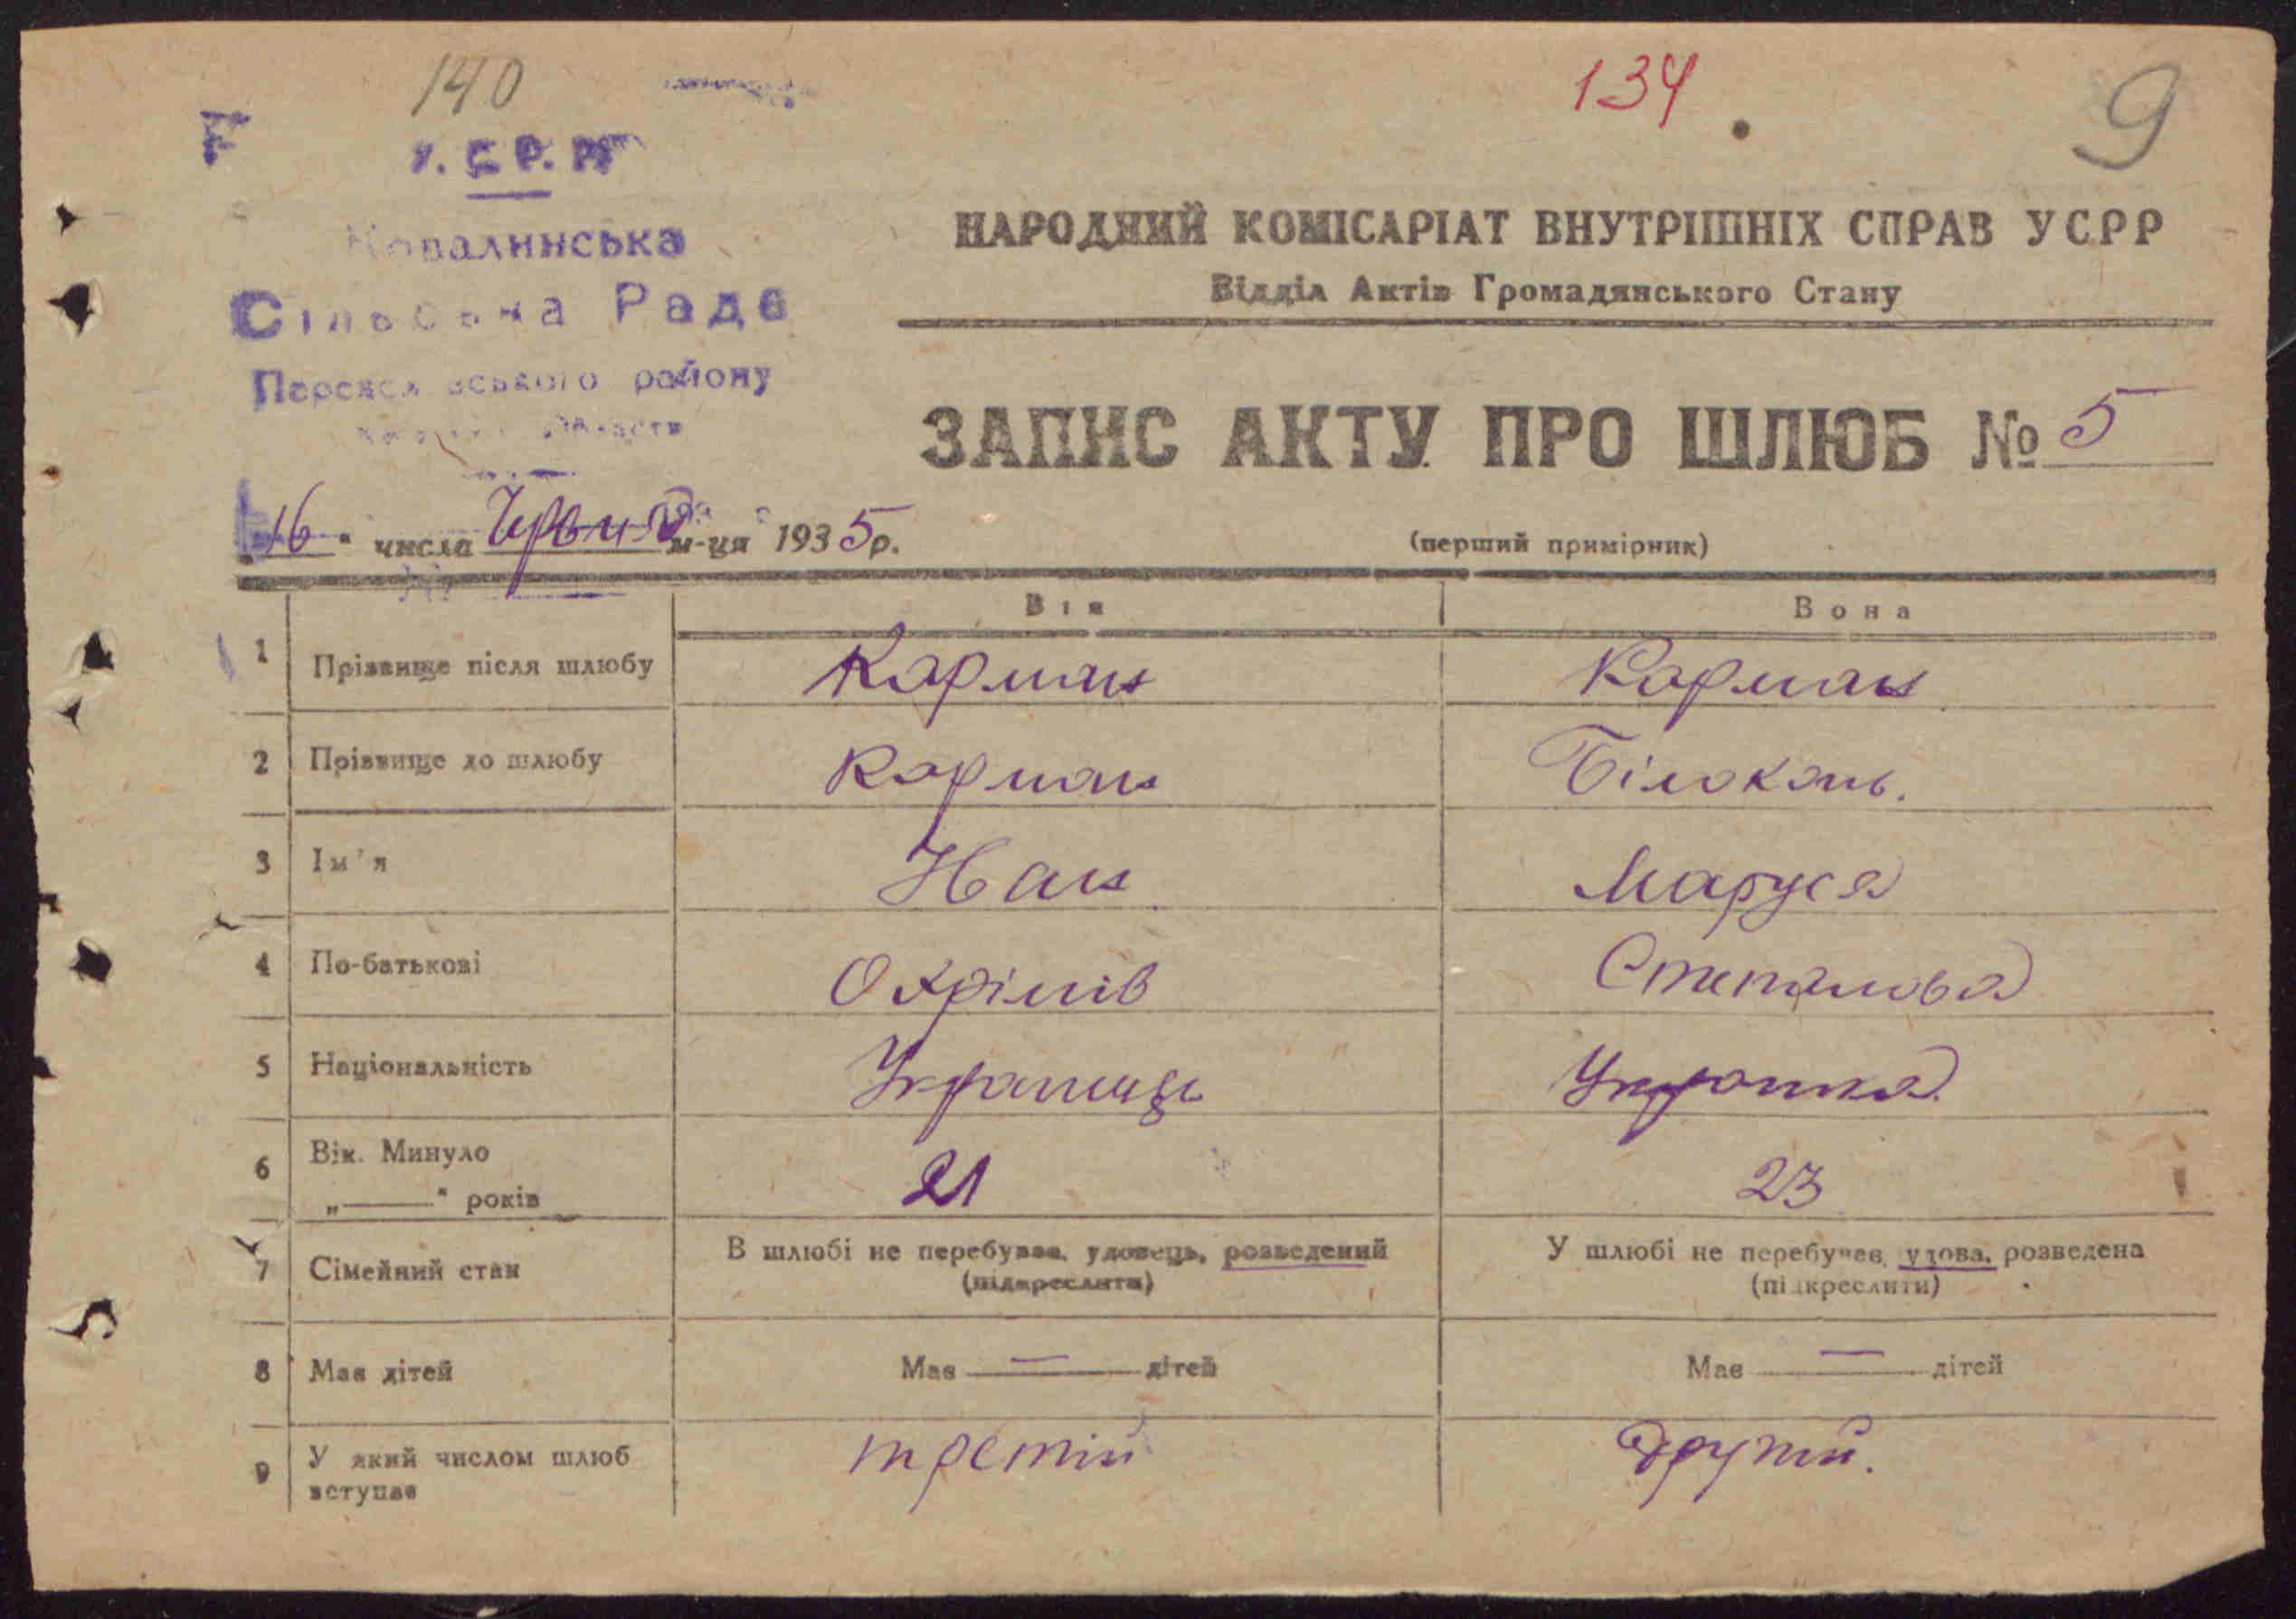 140
134
9
У.С.Р.Р.
Ковалинська
Сільська Рада
району
НАРОДНИЙ КОМІСАРІАТ ВНУТРІШНІХ СПРАВ УСРР
Відділ Актів Громадянського Стану
ЗАПИС АКТУ ПРО ШЛЮБ № 5
„16“ числа Червня м-ця 1935 р.
(перший примірник)
Він Вона
1 Прізвище після шлюбу Карман Карман
2 Прізвище до шлюбу Карман Білоконь.
3 Ім'я Іван Маруся
4 По-батькові Охрімів Степанова
5 Національність Українець Українка
6 Вік. Минуло 21 23
„——“ років
7 Сімейний стан В шлюбі не перебував, удовець, розведений У шлюбі не перебував, удова, розведена
(підкреслити) (підкреслити)
8 Має дітей Має — дітей Має — дітей
9 У який числом шлюб третій другий.
вступає